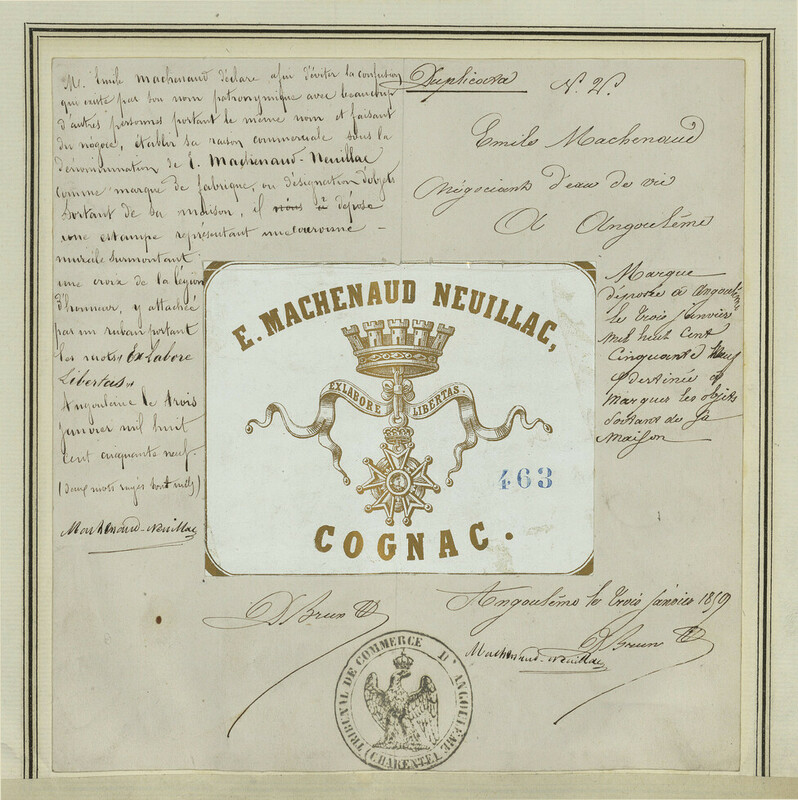 M. Emile Machenaud déclare afin d'éviter la confusion
qui existe par son nom patronymique avec beaucoup
d'autres personnes portant le même nom et faisant
du négoce, établir sa raison commerciale sous la
dénomination de E. Machenaud-Neuillac
comme marque de fabrique, ou désignation d'objets
sortant de sa maison, il nous a dépose
une estampe représentant une couronne
murale surmontant
une croix de la légion
d'honneur, y attachée
par un ruban portant
les mots Ex Labore
Libertas
Angoulême le trois
janvier mil huit
cent cinquante neuf.
(deux mots rayés sont nuls)
Machenaud-Neuillac
Duplicata N. 2.
Emile Machenaud
Négociant d'eau de vie
A Angoulême
Marque
déposée à Angoulême
le trois Janvier
mil huit cent
cinquante neuf
destinée à
marquer les objets
sortant de sa
maison
E. MACHENAUD NEUILLAC,
EX LABORE LIBERTAS.
463
COGNAC.
D. Brun
Angoulême le trois janvier 1859
D. Brun
Machenaud-Neuillac
TRIBUNAL DE COMMERCE D'ANGOULÊME
(CHARENTE)